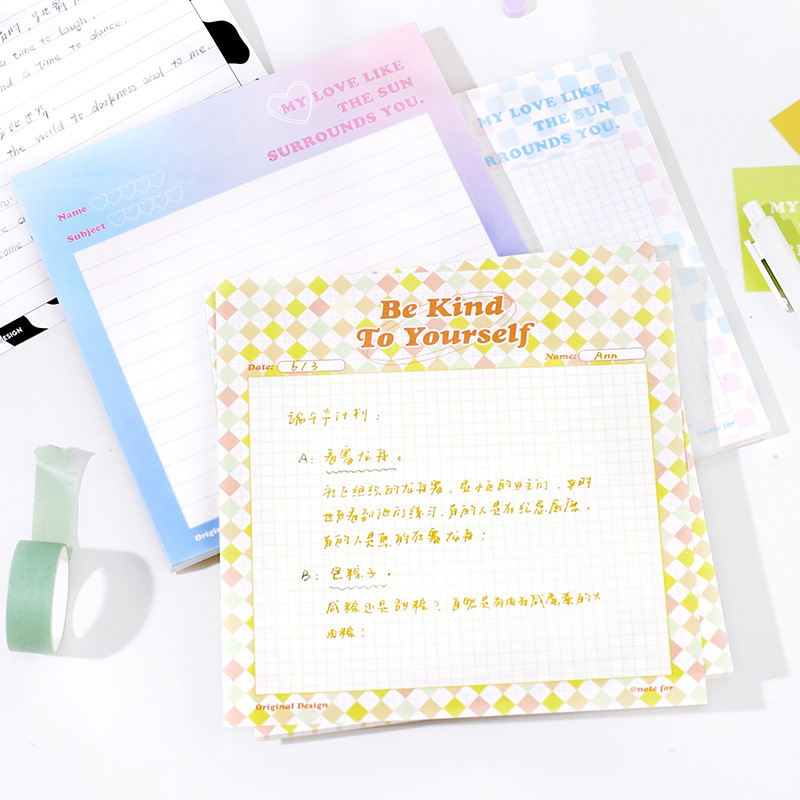 a time to laugh.
and a time to dance.
the world to darkness and to me.
ESIGN
MY LOVE LIKE
THE SUN
SURROUNDS YOU.
Name
Subject
Original
MY LOVE LIKE
THE SUN
RROUNDS YOU.
note for
MY
Be Kind
To Yourself
Date: 6/3 Name: Ann
端午节计划:
A: 看赛龙舟。
社区组织的龙舟赛,是小区的业主们,平时
也有看到他们练习,有的人是在纪念屈原,
有的人是真的在赛龙舟!
B: 包粽子。
咸粽还是甜粽?自然是有肉有咸蛋黄的大
肉粽!
Original Design
note for